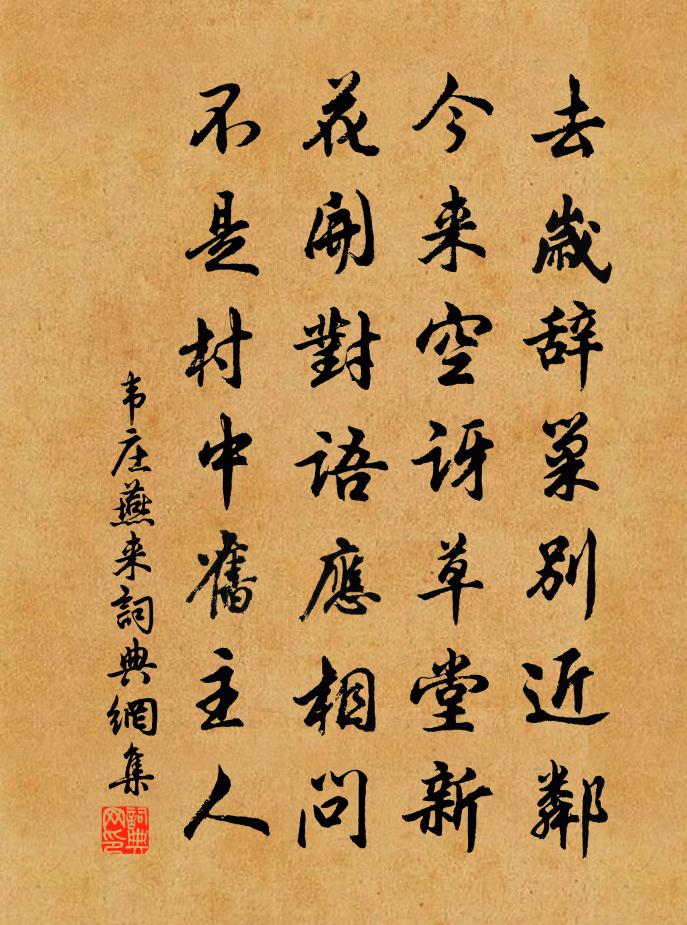 去歲辞巢別近鄰
今来空訝草堂新
花開對語應相問
不是村中舊主人
韦庄燕来詞典網集
詞典网印